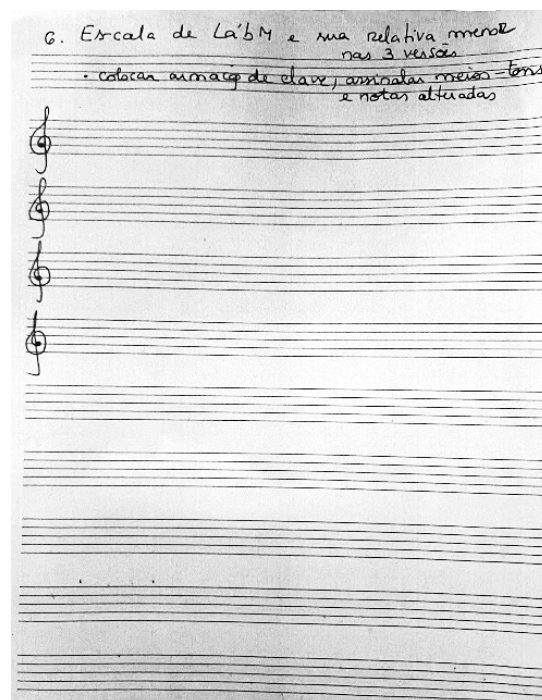 6. Escala de Láb M e sua relativa menor
nas 3 versões
• colocar armação de clave, assinalar meios-tons
e notas alteradas